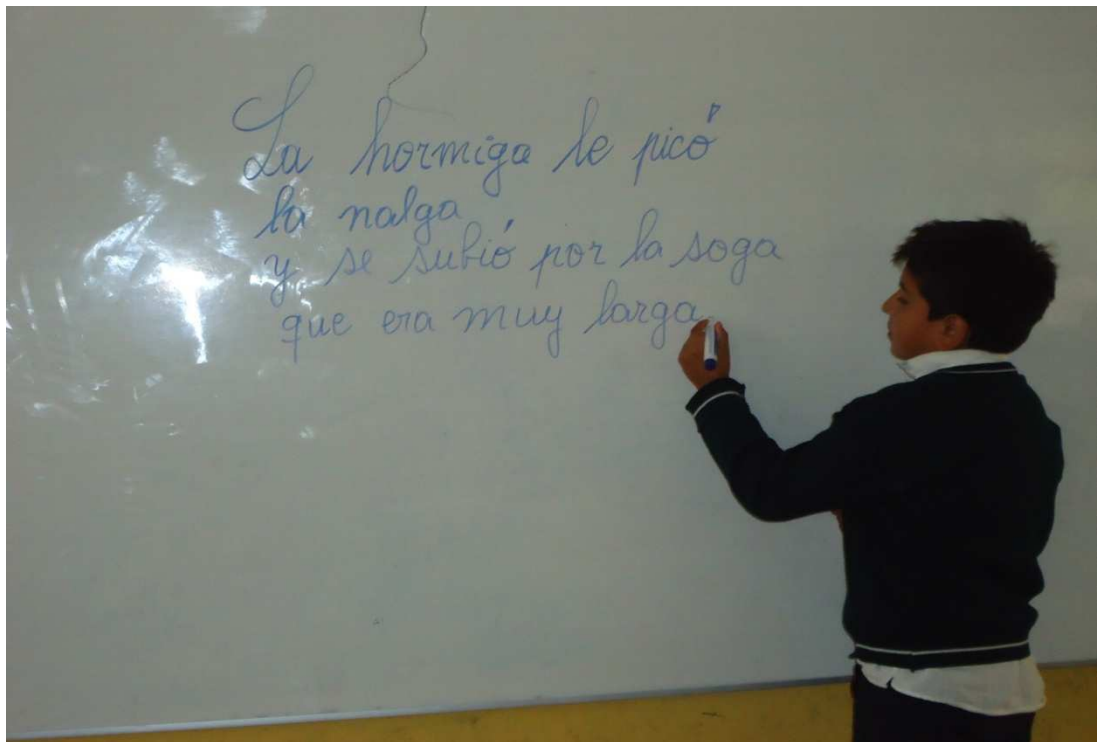 La hormiga le picó
la nalga
y se subió por la soga
que era muy larga